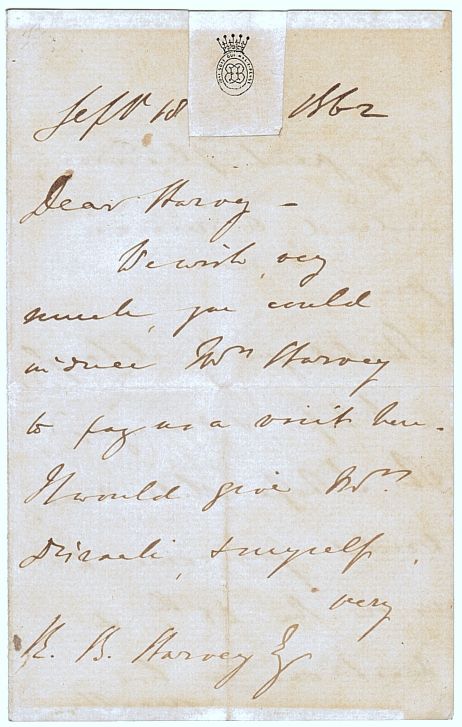 Sept 18 1862
Dear Harvey –
We wish, very
much, you could
induce Mrs Harvey
to pay us a visit here.
It would give Mrs
Disraeli, & myself,
very
R. B. Harvey Esq